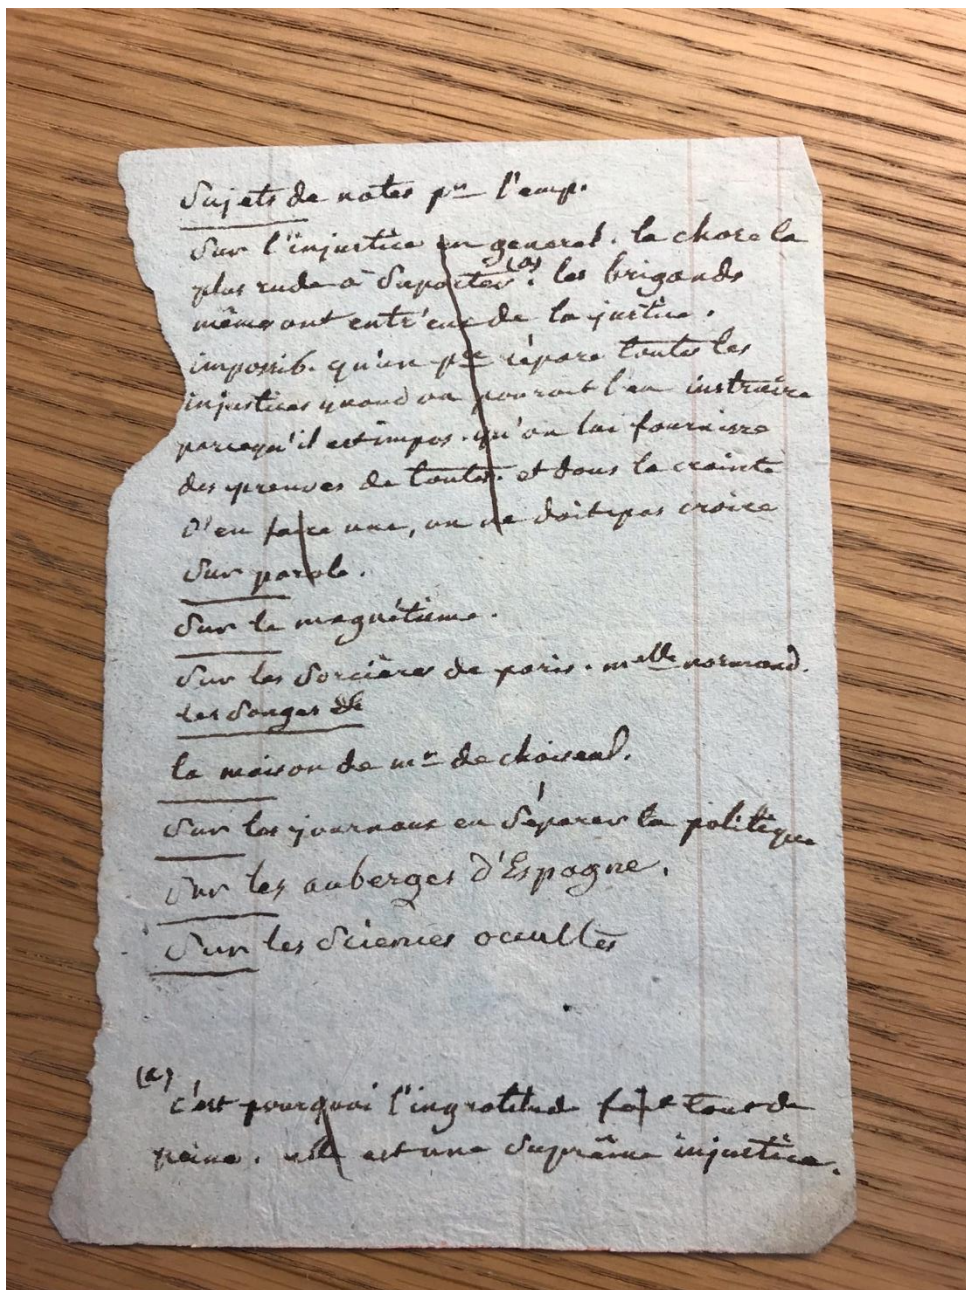 Sujets de notes pr l'emp.
Sur l'injustice en general. la chose la
plus rude à Suporter (a). les brigands
même ont entr'eux de la justice.
impossib. qu'un pce répare toutes les
injustices quand on pourrait l'en instruire
parcequ'il est impos. qu'on lui fournisse
des preuves de toutes. et dans la crainte
d'en faire une, on ne doit pas croire
Sur parole.
Sur le magnétisme.
Sur les Sorcières de paris. melle normand.
les Songes &c
la maison de mr de choiseul.
Sur les journaux en Séparer la politique
Sur les auberges d'Espagne.
Sur les Sciences occultes
(a)
c'est pourquoi l'ingratitude fait tant de
peine. elle est une Suprême injustice.